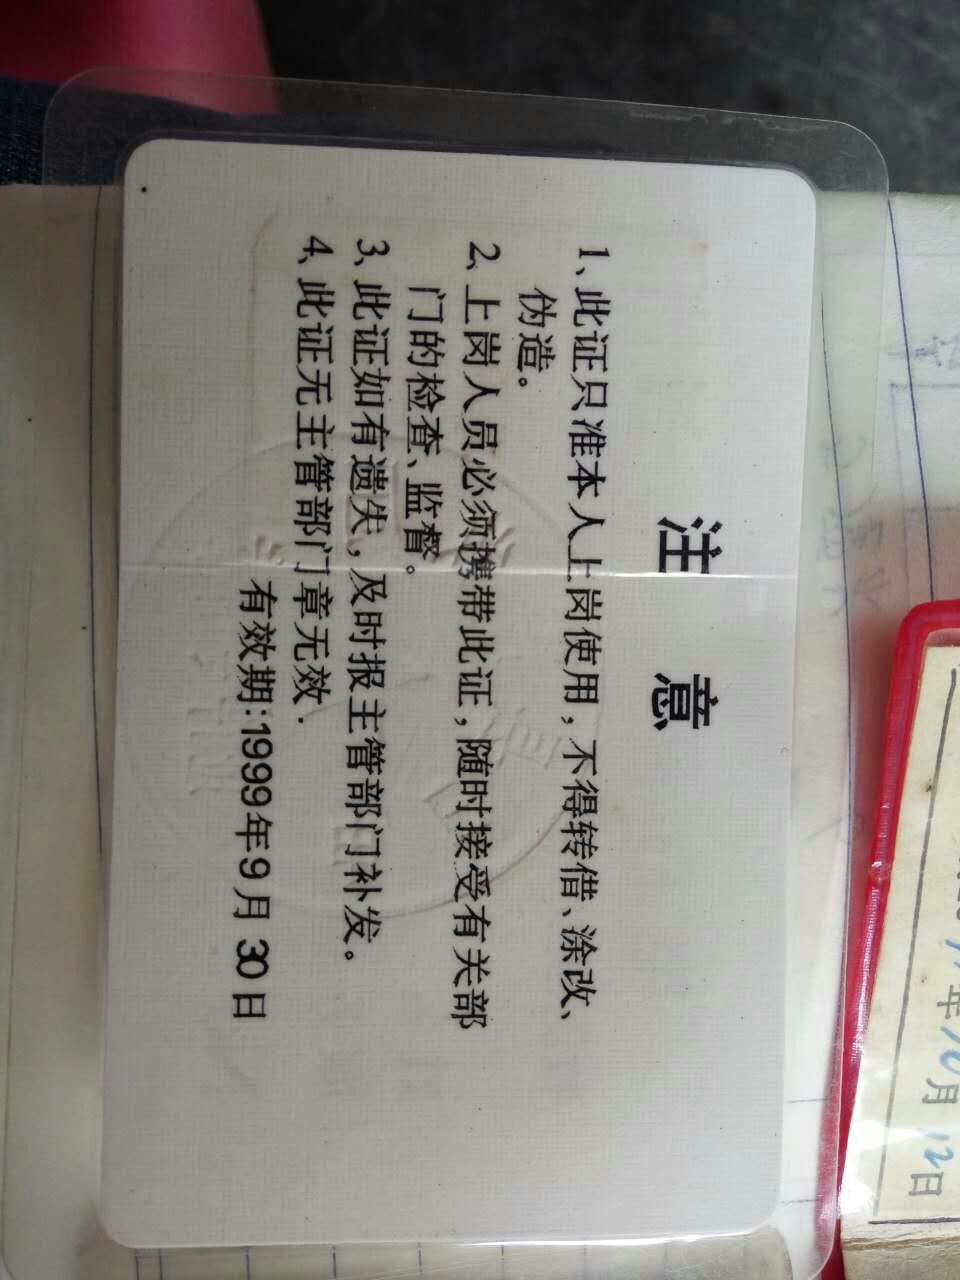 注 意
1、此证只准本人上岗使用,不得转借、涂改、
伪造。
2、上岗人员必须携带此证,随时接受有关部
门的检查、监督。
3、此证如有遗失,及时报主管部门补发。
4、此证无主管部门章无效.
有效期:1999年9月 30日
年10月12日